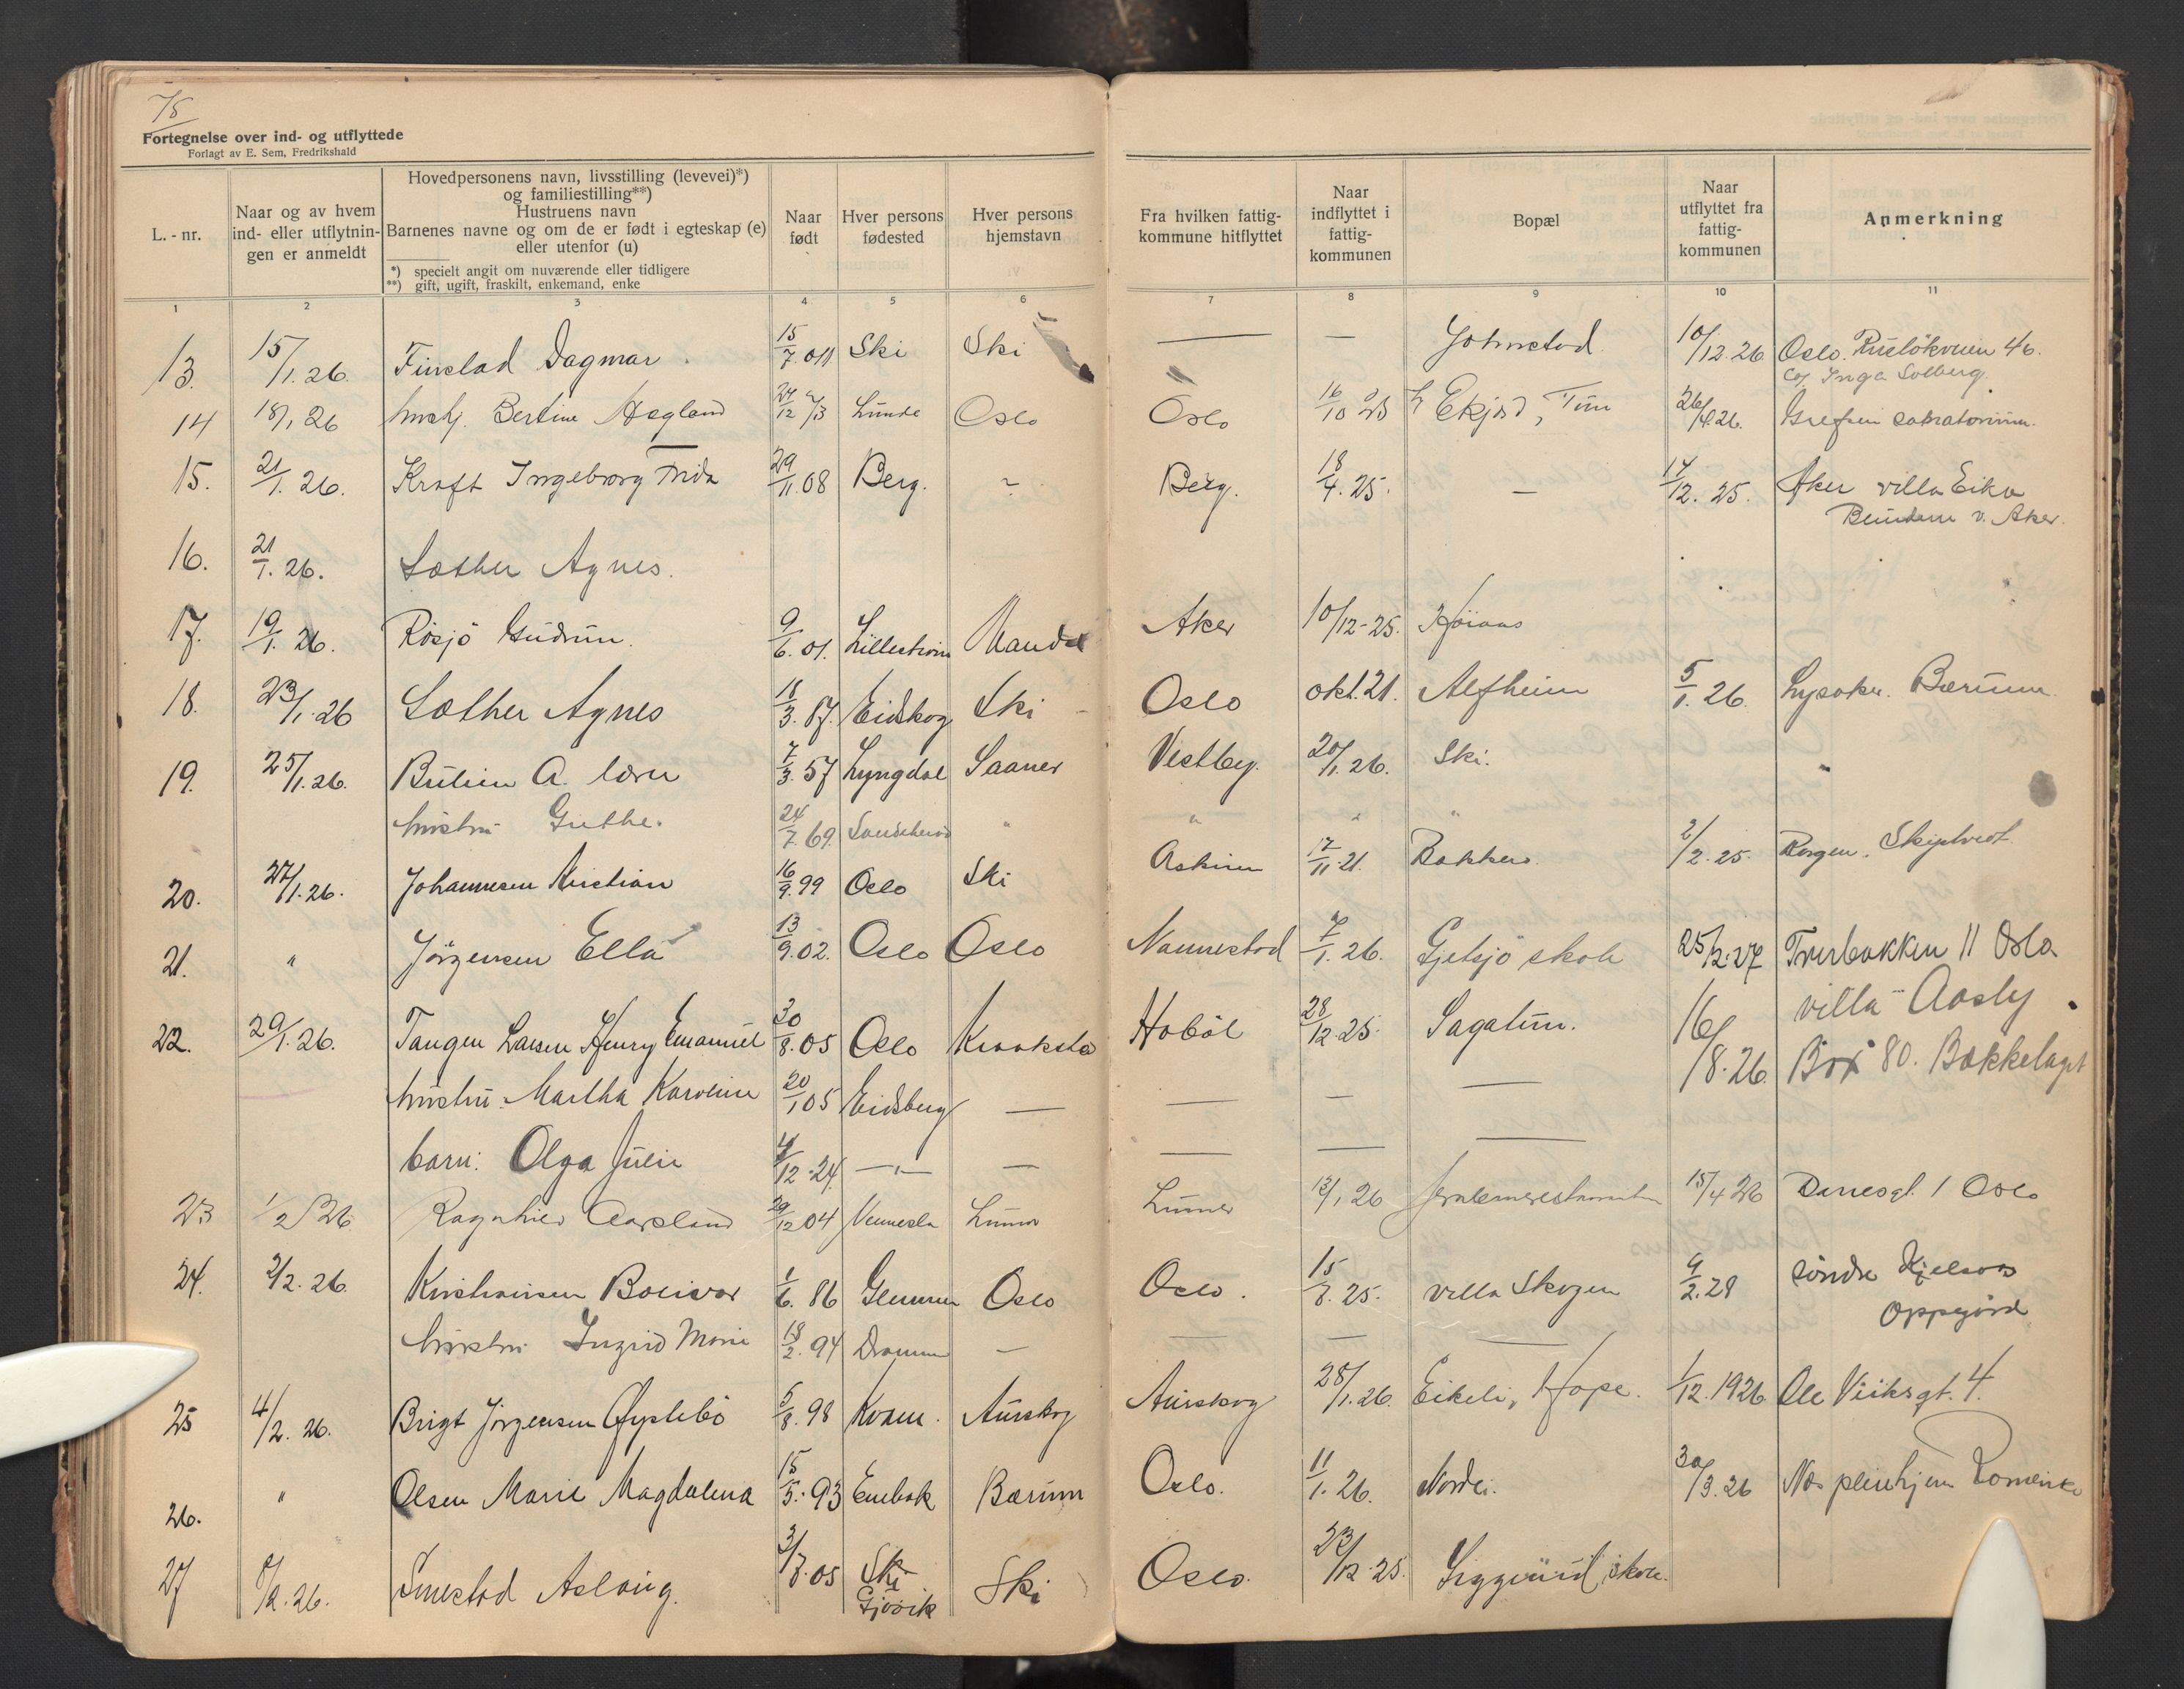 75
Fortegnelse over ind- og utflyttede
Forlagt av E. Sem, Fredrikshald
L. - nr.
Naar og av hvem ind- eller utflytnin- gen er anmeldt
Hovedpersonens navn, livsstilling (levevei)*)
og familiestilling**)
Hustruens navn
Barnenes navne og om de er født i egteskap (e)
eller utenfor (u)
*) specielt angit om nuværende eller tidligere
**) gift, ugift, fraskilt, enkemand, enke
Naar født
Hver persons fødested
Hver persons hjemstavn
Fra hvilken fattig- kommune hitflyttet
Naar indflyttet i fattig- kommunen
Bopæl
Naar utflyttet fra fattig- kommunen
Anmerkning
1 2 3 4 5 6 7 8 9 10 11
13. 15/1. 26. Finstad Dagmar. 15/7. 011 Ski Ski — — 10/12. 26 Oslo. 46.
c/o Inga Solberg.
14 18/1 26 Bertine Hægland Lunde Oslo Oslo 16/10 25 Ekjord, Tun 26/4. 26. Grefsen
15. 21/1. 26. Kraft Ingeborg Frida 29/11. 08 Berg. Berg. 18/4. 25. — 17/12. 25. Aker villa Eika
v. Aker.
16. 21/1. 26. Sæther Agnes.
17. 19/1. 26. Røsjö Gudrun. 9/6. 01. Lillestrøm Aker 10/12-25.
18. 23/1. 26 Sæther Agnes 18/3. 87. Eidskog Ski Oslo okt. 21. Alfheim 5/1. 26. Lysaker. Bærum.
19. 25/1. 26. A. lærer 7/3. 57 Lyngdal Saaner Vestby. 20/1. 26. Ski.
hustru 24/7. 69. " " " "
20. 27/1. 26. Johannesen Kristian 16/9. 99 Oslo Ski Askim 17/11. 21. Bakken. 2/2. 25. Skiptvedt.
21. " Jörgensen Ella 13/9. 02. Oslo Oslo Nannestad 7/1. 26. Gjetsjö skole 25/2. 27 Tverbakken 11 Oslo
22. 29/1. 26. Tangen Larsen Henry Emanuel 30/8. 05 Oslo Kraakstad Hobøl 28/12. 25. Sagatun. 16/8. 26. villa Aasly
Box 80. Bækkelaget
hustru. Martha Karoline 20/1 05 Eidsberg — — — —
barn: Olga Julie 4/12. 24. —"— — — — —
23 1/2 26 Ragnhild Aarsland 29/12 04 Vennesla Lunner Lunner 13/1 26 15/4 26 1 Oslo
24. 2/2. 26. Kristiansen 1/6. 86 Glemmen Oslo Oslo. 15/8. 25. villa Skogen 9/2. 28 søndre Kjelsaas
Oppegård
hustru Ingrid Marie 18/2. 94 Drammen — — — —
25 4/2. 26. Brigt Jörgensen Øystebö 5/8. 98 Kvam. Aurskog Aurskog 28/1. 26. Eikeli, 1/12. 1926 Ole Viiksgt. 4.
26. " Olsen Marie Magdalena 15/5. 93 Enebak Bærum Oslo. 11/1. 26. 30/3. 26 Næs pleiehjem Romerike
27 8/2. 26. Smestad Aslaug. 3/8. 05 Ski
Gjøvik Ski Oslo. 22/12. 25. Siggerud skole.